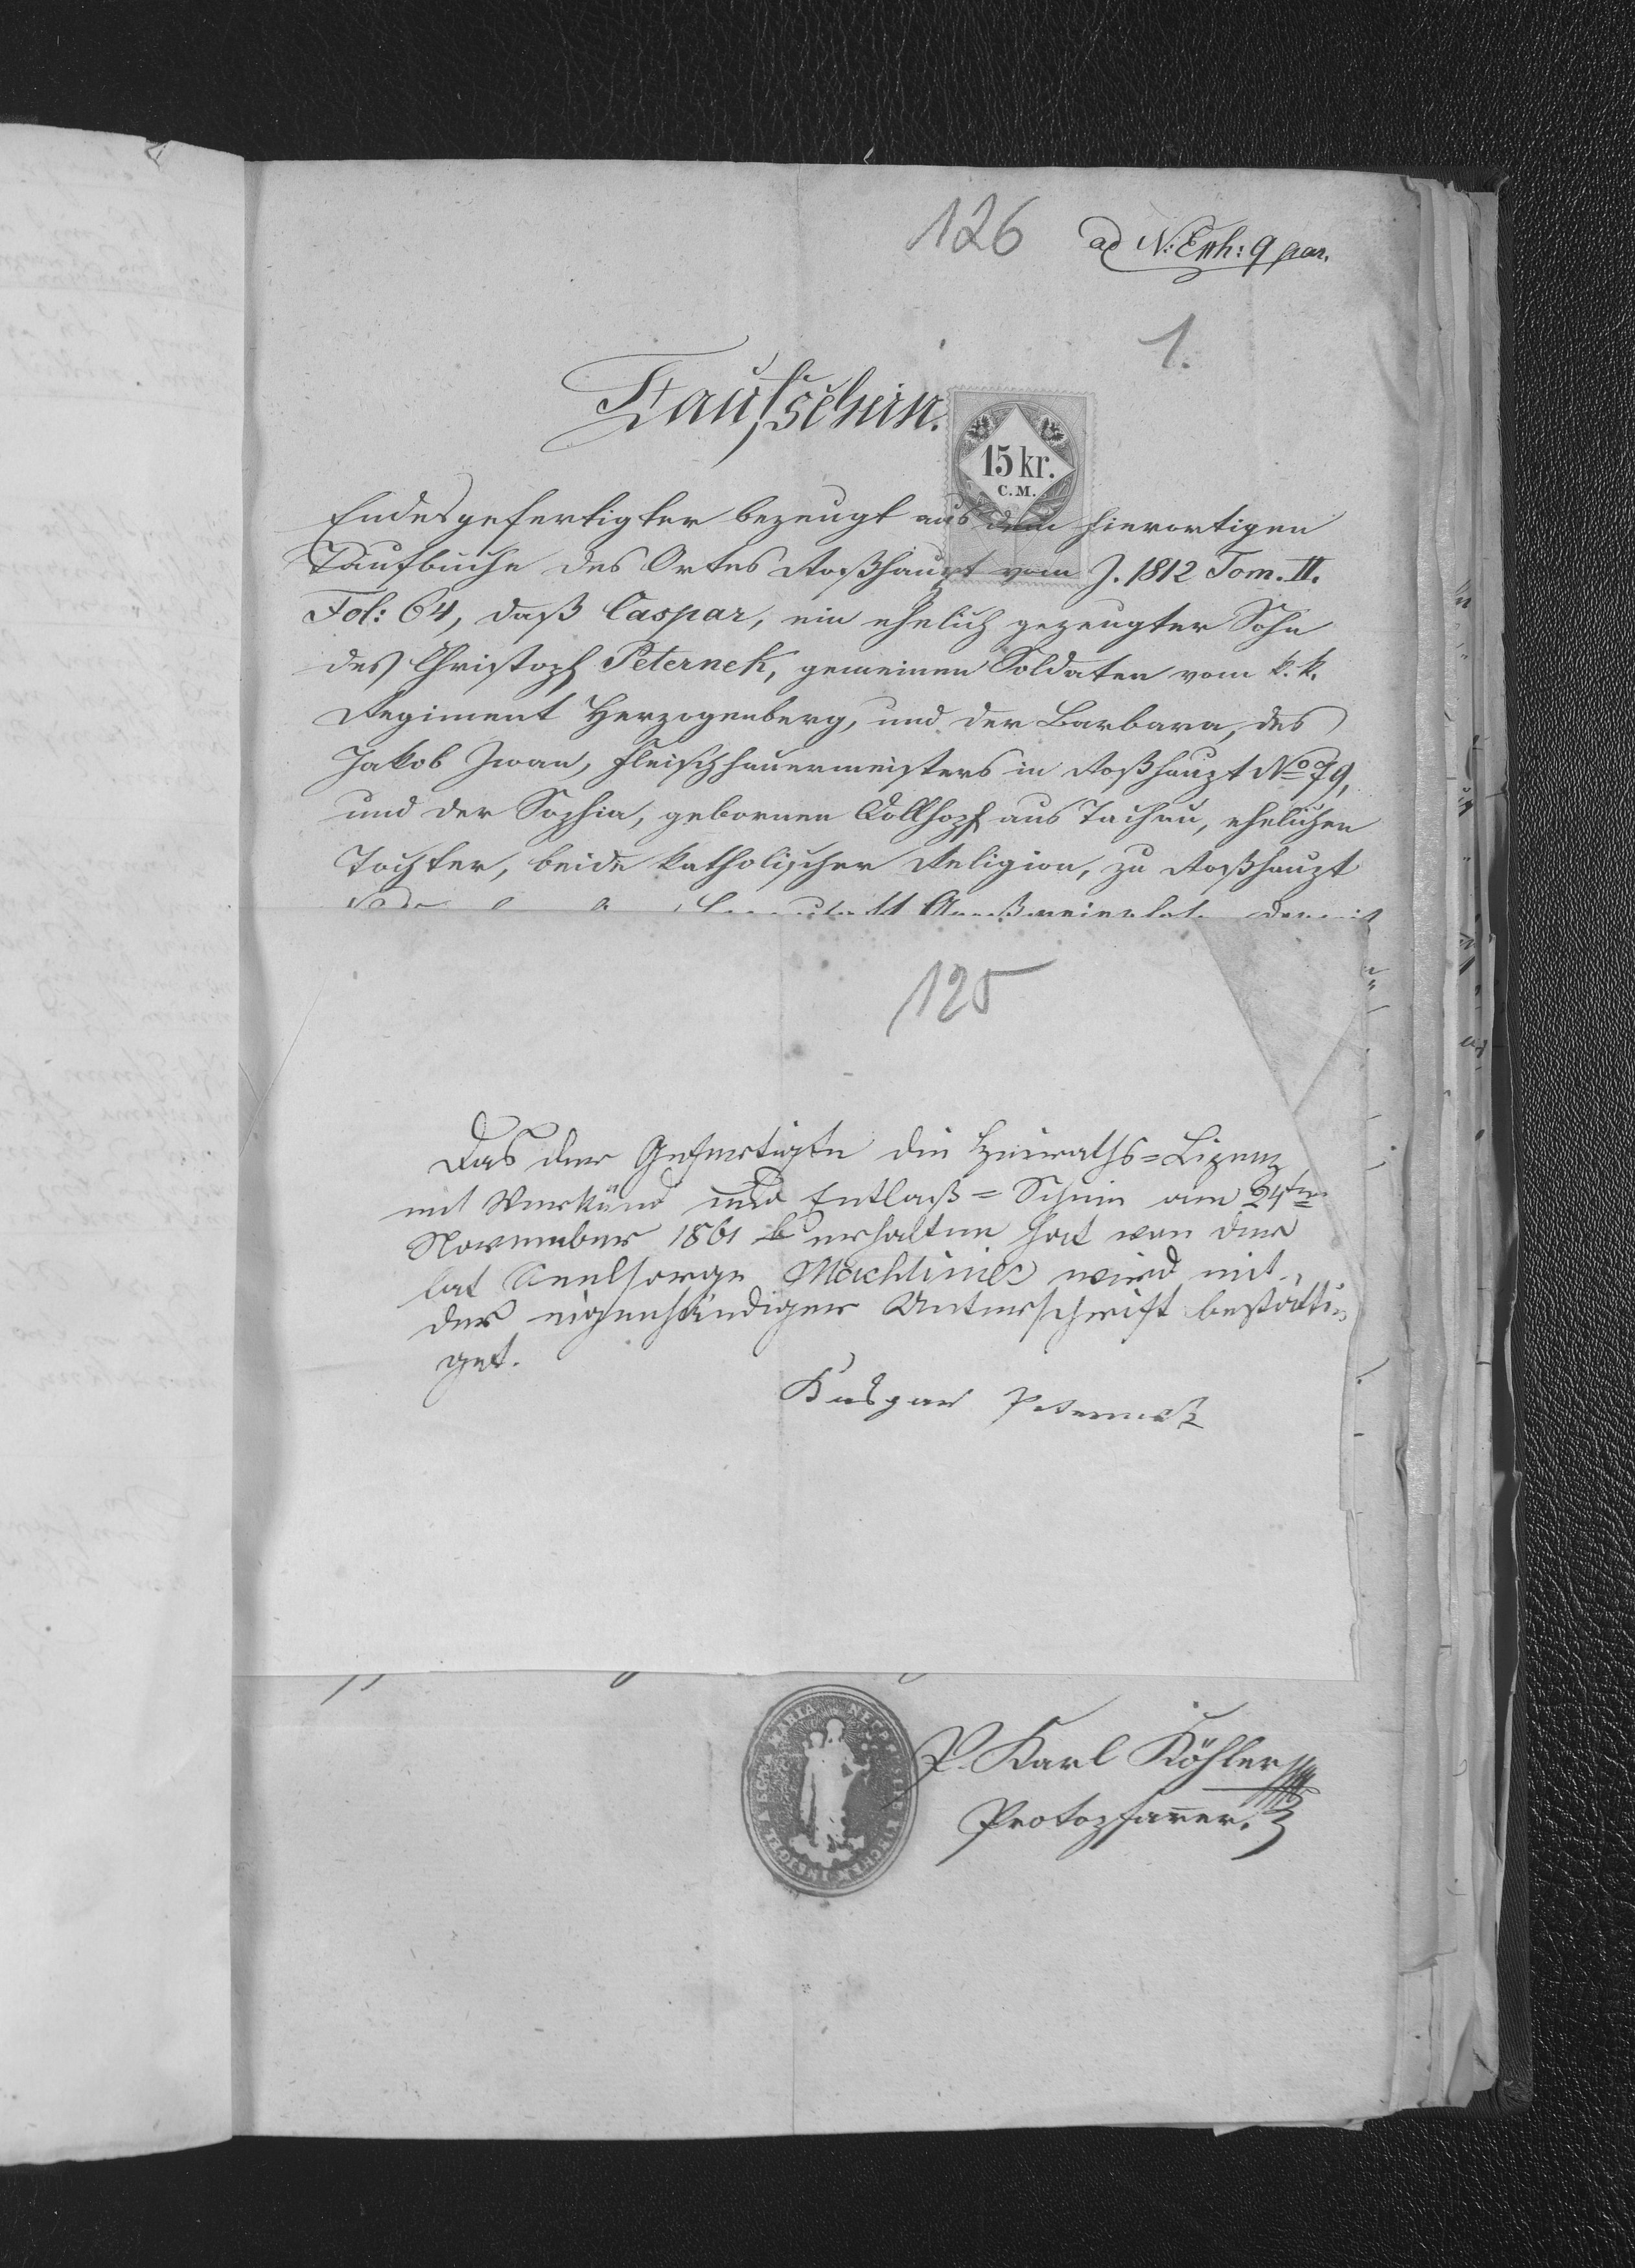 126 ad N: Exh: 9 par.
1.
Taufschein.
15 kr.
C.M.
Endesgefertigter bezeugt aus dem hierortigen
Taufbuche des Ortes Roßhaupt vom J. 1812 Tom. II.
Fol: 64, daß Caspar, ein ehelich gezeugter Sohn
des Christoph Peternek, gemeinen Soldaten vom k. k.
Regiment Herzogenberg, und der Barbara, des
Jakob Zwan, Fleischhauermeisters in Roßhaupt No 79,
und der Sophia, gebornen Dollhopf aus Tachau, ehelichen
Tochter, beide katholischer Religion, zu Roßhaupt
125
Das der Gefertigte die Heiraths=Lizenz
mit Verkünd und Entlaß=Schein am 24ten
November 1861 erhalten hat von der
lat Seelsorge Machliniec wird mit
der eigenhändiger Unterschrift bestätti=
get.
Kaspar Peternek
P. Karl Köhler
Protopfarrer.